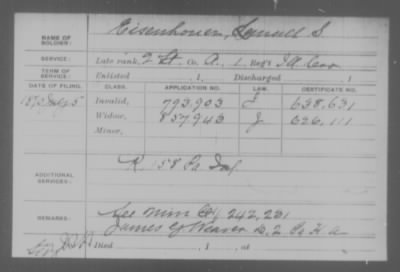 NAME OF SOLDIER: Eisenhower, Samuel S.
SERVICE: Late rank, 2 Lt. Co. A, 1 Reg't IA Cav
TERM OF SERVICE: Enlisted , 1 , Discharged , 1
DATE OF FILING. CLASS. APPLICATION NO. LAW. CERTIFICATE NO.
July 5 Invalid, 793,903 638,631
Widow, 857,943 J 626,111
Minor,
ADDITIONAL SERVICES: K 158 Pa Inf
REMARKS: See Min 242,231
James Weaver D, 2 Pa H A
Died , 1 , at